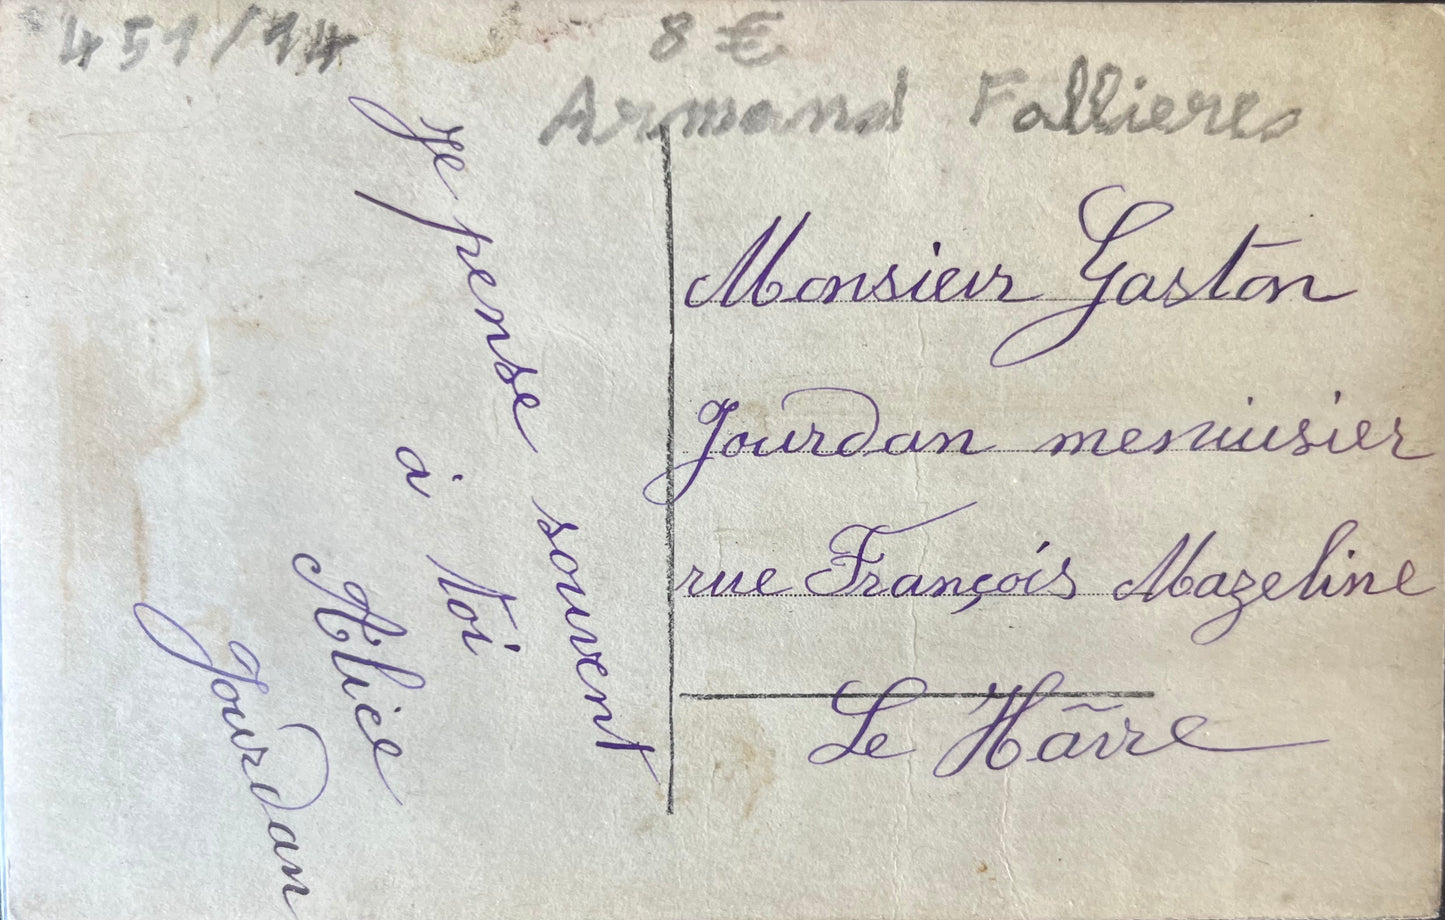 451/14
8 €
Armand Fallieres
je pense souvent
à toi
Alice
Jourdan
Monsieur Gaston
Jourdan menuisier
rue François Mazeline
Le Hâvre